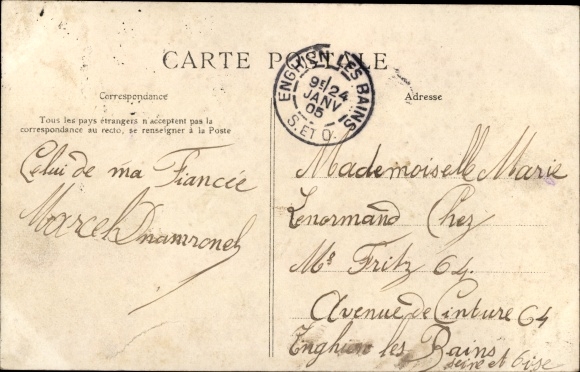 CARTE POSTALE
ENGHIEN LES BAINS
9E/24
JANV
05
S. ET O.
Correspondance
Adresse
Tous les pays étrangers n'acceptent pas la
correspondance au recto, se renseigner à la Poste
Celui de ma Fiancée
Marcel Dnamronel
Mademoiselle Marie
Lenormand Chez
Mr Fritz 64.
Avenue de Ceinture 64
Enghien les Bains
Seine et Oise